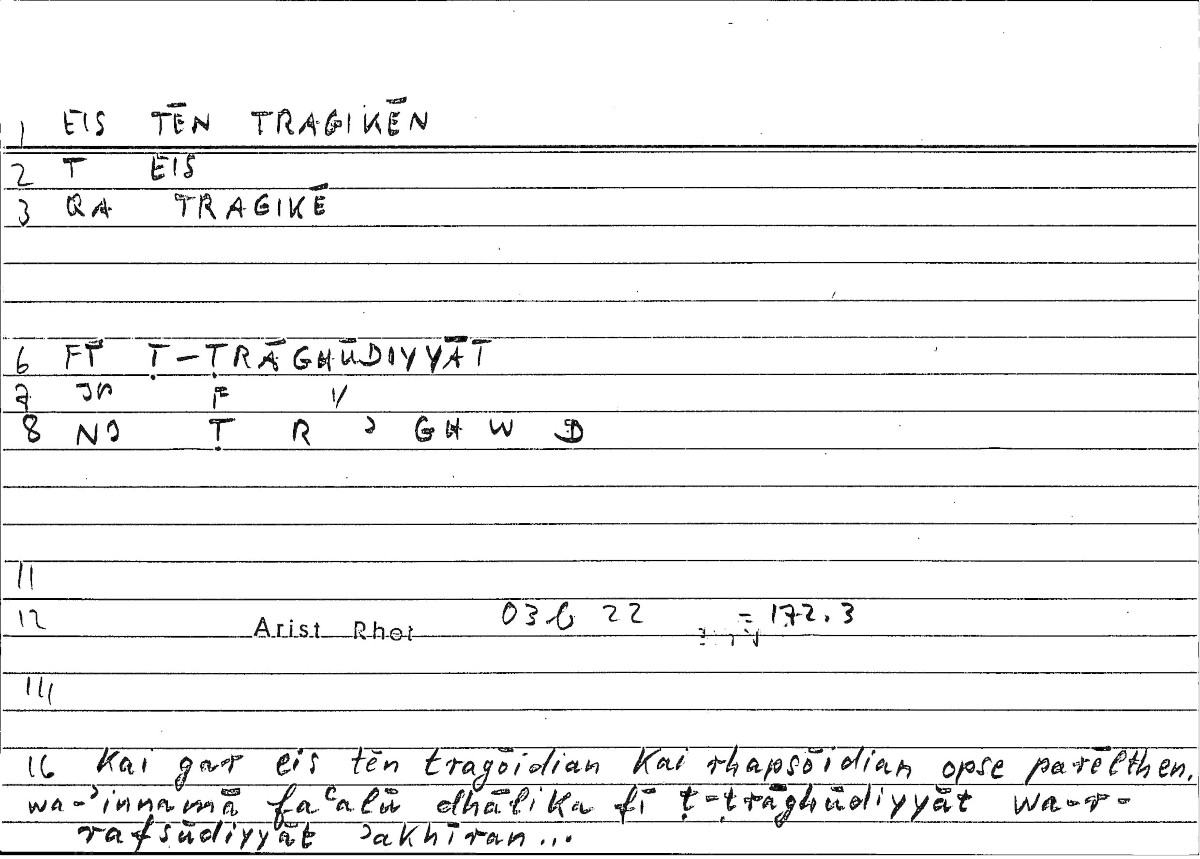 1 EIS TĒN TRAGIKĒN
2 T EIS
3 QA TRAGIKĒ
6 FĪ Ṭ-ṬRĀGHŪDIYYĀT
7 F
8 NJ Ṭ R ʾ GH W D
11
12 Arist Rhet 03b 22 = 172.3
14
16 Kai gar eis tēn tragōidian kai rhapsōidian opse parēlthen.
wa-ʾinnamā faʿalū dhālika fī ṭ-ṭrāghūdiyyāt wa-r-
rafsūdiyyāt ʾakhīran...